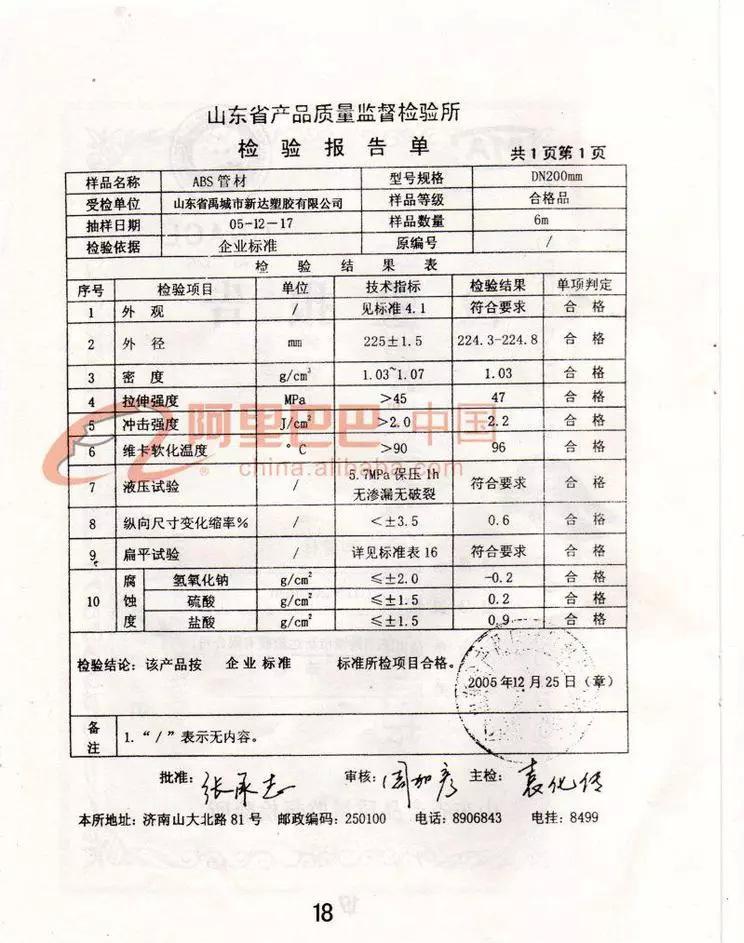 山东省产品质量监督检验所
检验报告单
共1页第1页
样品名称 ABS管材 型号规格 DN200mm
受检单位 山东省禹城市新达塑胶有限公司 样品等级 合格品
抽样日期 05-12-17 样品数量 6m
检验依据 企业标准 原编号 /
检验结果表
序号 检验项目 单位 技术指标 检验结果 单项判定
1 外观 / 见标准4.1 符合要求 合格
2 外径 mm 225±1.5 224.3-224.8 合格
3 密度 g/cm³ 1.03~1.07 1.03 合格
4 拉伸强度 MPa >45 47 合格
5 冲击强度 J/cm² >2.0 2.2 合格
6 维卡软化温度 °C >90 96 合格
7 液压试验 / 5.7MPa保压1h 无渗漏无破裂 符合要求 合格
8 纵向尺寸变化缩率% / <±3.5 0.6 合格
9 扁平试验 / 详见标准表16 符合要求 合格
10 腐蚀度 氢氧化钠 g/cm² ≤±2.0 -0.2 合格
硫酸 g/cm² ≤±1.5 0.2 合格
盐酸 g/cm² ≤±1.5 0.9 合格
检验结论：该产品按 企业标准 标准所检项目合格。
2005年12月25日（章）
备注 1.“/”表示无内容。
批准：张承志 审核：周加彦 主检：
本所地址：济南山大北路81号 邮政编码：250100 电话：8906843 电挂：8499
18
阿里巴巴中国
china.alibaba.com